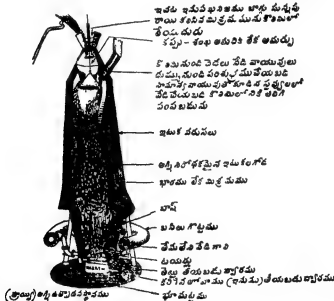 ఇచట ఇనుపఖనిజము బొగ్గు సున్నపు
రాయి కలిసిన మిశ్రమ మును కొలిమిలో
తీయుదురు
కప్పు - శంఖ ఆకారికి శేక అమర్పు
కొలిమినుండి వెడలు వేడి వాయువులు
దుమ్మునుండి పరిశుభ్రముచేయబడి
సామాన్య వాయువుతోకూడిన స్టవ్వులలో
వేడిచేయబడి కొలిమిలోనికి తిరిగి
పంపబడును
ఇటుక వరుసలు
అగ్ని నిరోధకమైన ఇటుకలగోడ
భారము లేక మిశ్రమము
బాష్
బసిలు గొట్టము
తేమలేని వేడి గాలి
టయర్లు
తెట్టు తీయబడు ద్వారము
కరిగినలోహము (ఇనుము) తీయబడుద్వారము
భూమట్టము